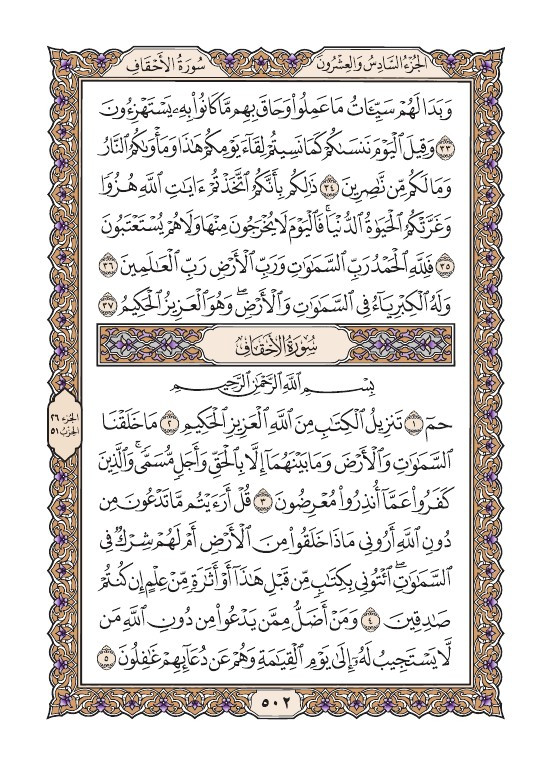 الجزء السادس والعشرون
سورة الأحقاف
وَبَدَا لَهُمْ سَيِّـَٔاتُ مَا عَمِلُوا۟ وَحَاقَ بِهِم مَّا كَانُوا۟ بِهِۦ يَسْتَهْزِءُونَ
٣٣ وَقِيلَ ٱلْيَوْمَ نَنسَىٰكُمْ كَمَا نَسِيتُمْ لِقَآءَ يَوْمِكُمْ هَـٰذَا وَمَأْوَىٰكُمُ ٱلنَّارُ
وَمَا لَكُم مِّن نَّـٰصِرِينَ ٣٤ ذَٰلِكُم بِأَنَّكُمُ ٱتَّخَذْتُمْ ءَايَـٰتِ ٱللَّهِ هُزُوًا
وَغَرَّتْكُمُ ٱلْحَيَوٰةُ ٱلدُّنْيَا ۚ فَٱلْيَوْمَ لَا يُخْرَجُونَ مِنْهَا وَلَا هُمْ يُسْتَعْتَبُونَ
٣٥ فَلِلَّهِ ٱلْحَمْدُ رَبِّ ٱلسَّمَـٰوَٰتِ وَرَبِّ ٱلْأَرْضِ رَبِّ ٱلْعَـٰلَمِينَ ٣٦
وَلَهُ ٱلْكِبْرِيَآءُ فِى ٱلسَّمَـٰوَٰتِ وَٱلْأَرْضِ ۖ وَهُوَ ٱلْعَزِيزُ ٱلْحَكِيمُ ٣٧
سُورَةُ الأَحْقَافِ
بِسْمِ ٱللَّهِ ٱلرَّحْمَـٰنِ ٱلرَّحِيمِ
حمٓ ١ تَنزِيلُ ٱلْكِتَـٰبِ مِنَ ٱللَّهِ ٱلْعَزِيزِ ٱلْحَكِيمِ ٢ مَا خَلَقْنَا
ٱلسَّمَـٰوَٰتِ وَٱلْأَرْضَ وَمَا بَيْنَهُمَآ إِلَّا بِٱلْحَقِّ وَأَجَلٍ مُّسَمًّى ۚ وَٱلَّذِينَ
كَفَرُوا۟ عَمَّآ أُنذِرُوا۟ مُعْرِضُونَ ٣ قُلْ أَرَءَيْتُم مَّا تَدْعُونَ مِن
دُونِ ٱللَّهِ أَرُونِى مَاذَا خَلَقُوا۟ مِنَ ٱلْأَرْضِ أَمْ لَهُمْ شِرْكٌ فِى
ٱلسَّمَـٰوَٰتِ ۖ ٱئْتُونِى بِكِتَـٰبٍ مِّن قَبْلِ هَـٰذَآ أَوْ أَثَـٰرَةٍ مِّنْ عِلْمٍ إِن كُنتُمْ
صَـٰدِقِينَ ٤ وَمَنْ أَضَلُّ مِمَّن يَدْعُوا۟ مِن دُونِ ٱللَّهِ مَن
لَّا يَسْتَجِيبُ لَهُۥٓ إِلَىٰ يَوْمِ ٱلْقِيَـٰمَةِ وَهُمْ عَن دُعَآئِهِمْ غَـٰفِلُونَ ٥
الجزء ٢٦
الحزب ٥١
٥٠٢